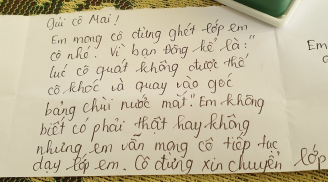 Gửi cô Mai!
Em mong cô đừng ghét lớp em
cô nhé. Vì bạn Đông kể là: "
lúc cô quát không được thế
cô khóc và quay vào góc
bảng chùi nước mắt." Em không
biết có phải thật hay không
nhưng em vẫn mong cô tiếp tục
dạy lớp em. Cô đừng xin chuyển lớp
Em